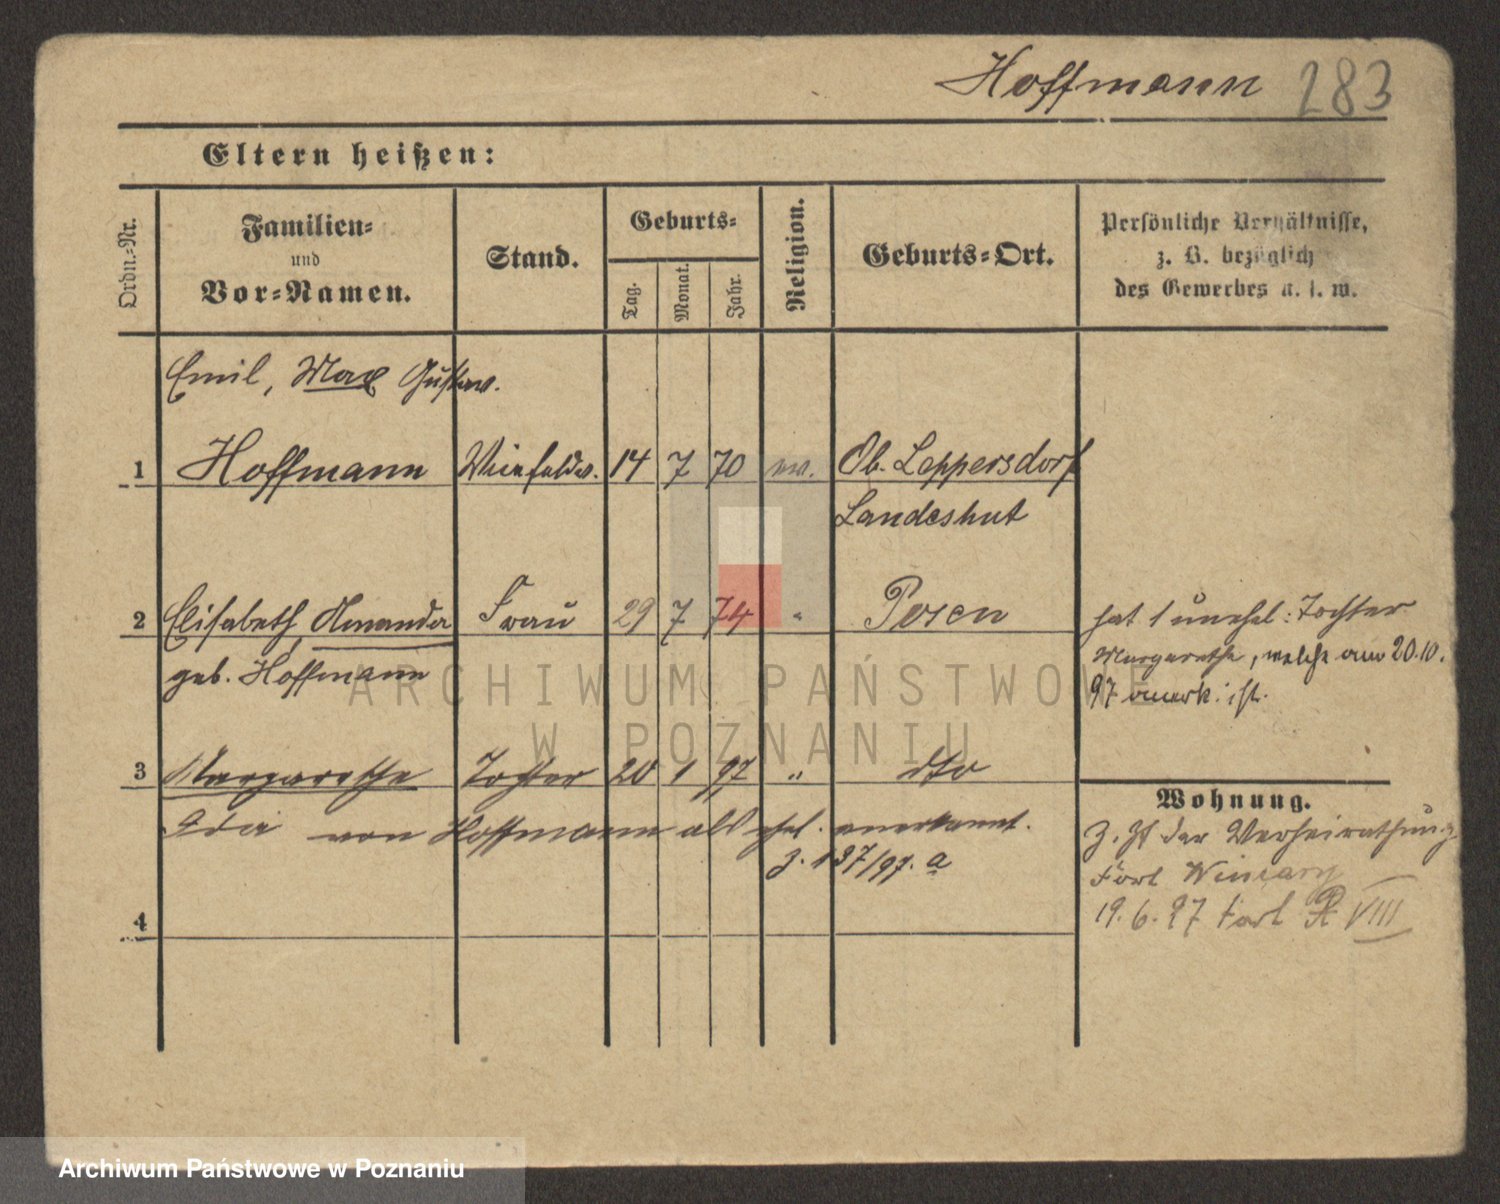 Hoffmann 283
Eltern heißen:
Ordn.-Nr.
Familien-
und
Vor-Namen.
Stand.
Geburts-
Tag.
Monat.
Jahr.
Religion.
Geburts-Ort.
Persönliche Verhältnisse,
z. B. bezüglich
des Gewerbes u. s. w.
Emil, Max Gustav.
1 Hoffmann 14 7 70 ev. Ob. Leppersdorf
Landeshut
2 Elisabeth, Amanda Frau 29 7 74 " Posen
geb. Hoffmann
hat 1 unehel: Tochter
Margarethe, welche am 20.10.
97 anerk. ist.
3 Margarethe Tochter 20 1 97 " dto
Ida von Hoffmann als ehel. anerkannt.
z. 137/97. a
4
Wohnung.
z. Zt der Verheirathung
Fort Winiary
19. 6. 97 Fort VIII
ARCHIWUM PAŃSTWOWE
W POZNANIU
Archiwum Państwowe w Poznaniu